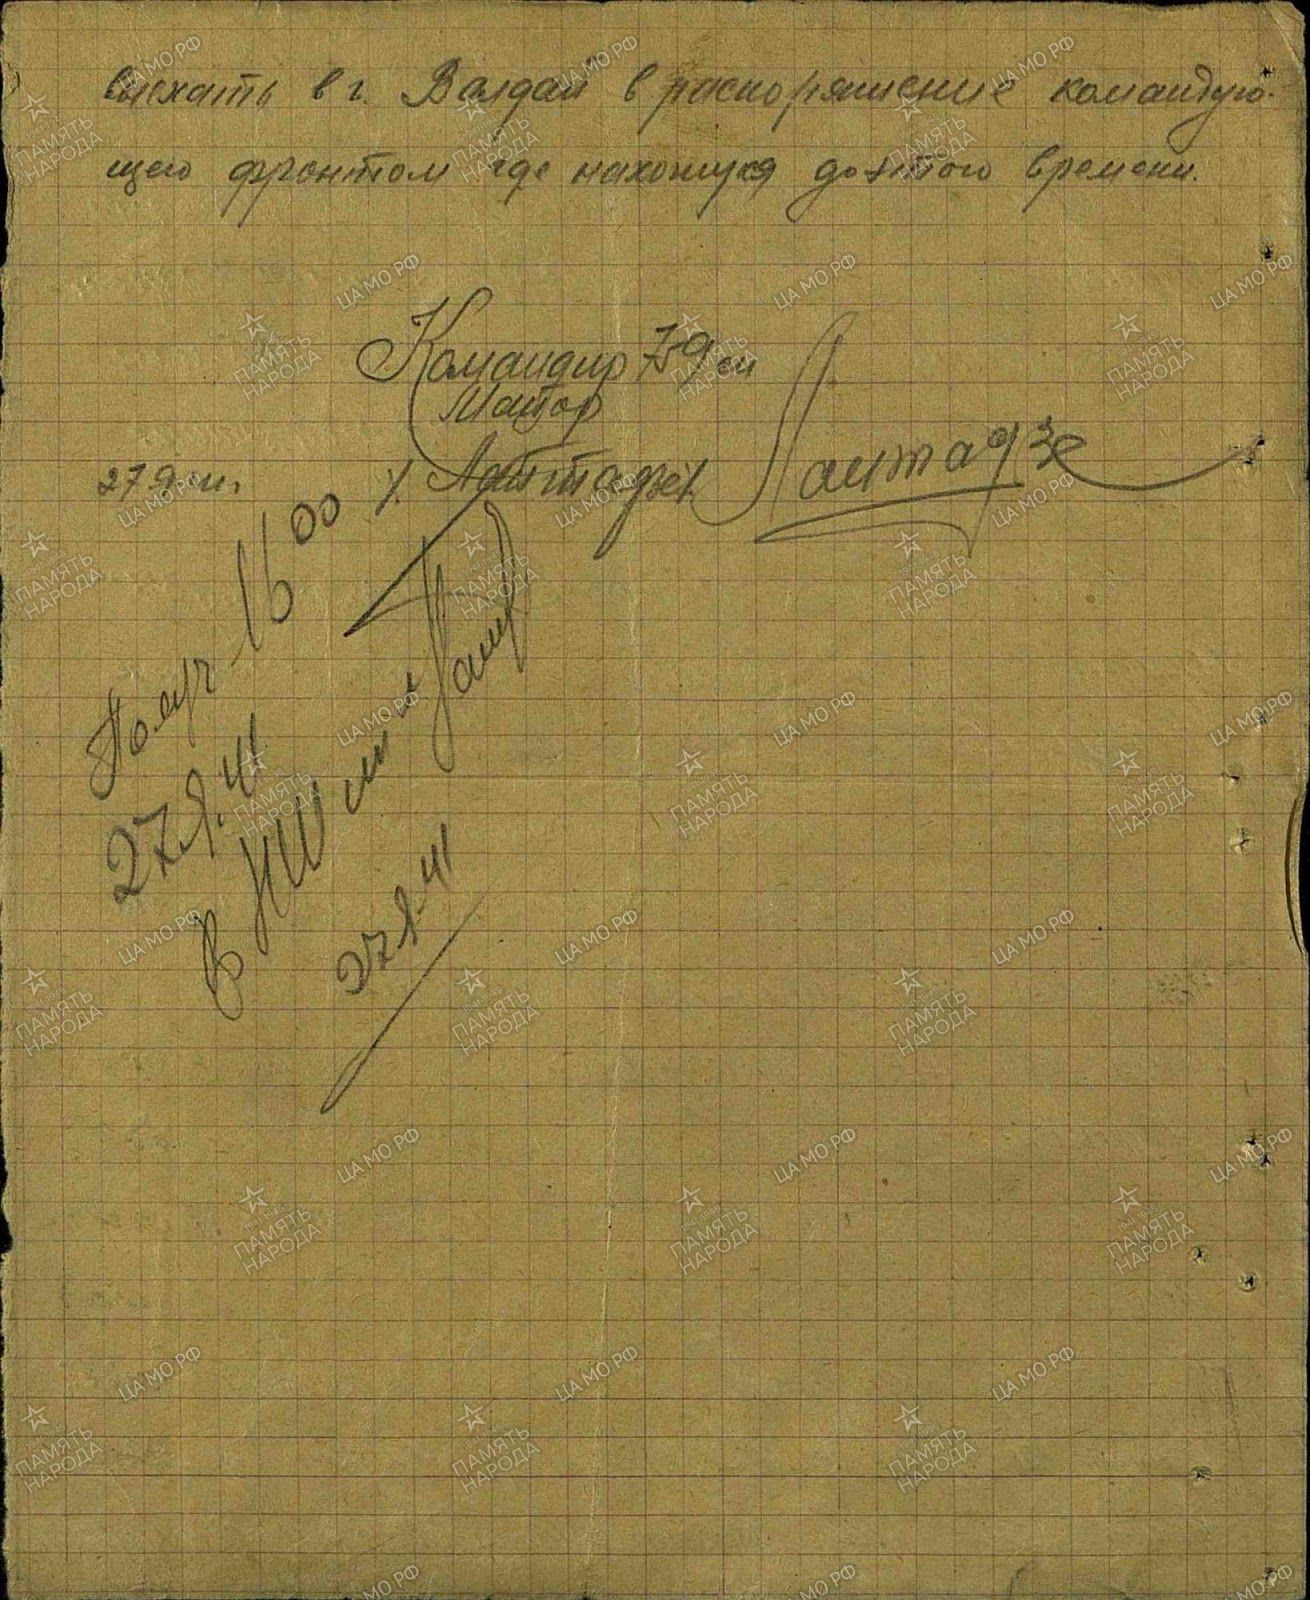 выехать в г. Валдай в распоряжение командую-
щего фронтом где нахожуся до этого времени.
Командир 759 сп
Майор
/Лантадзе/ Лантадзе
27.9.41.
Получ 16 00
27.9.41
В НШ
27.9.41
ЦА МО РФ
ПАМЯТЬ
НАРОДА